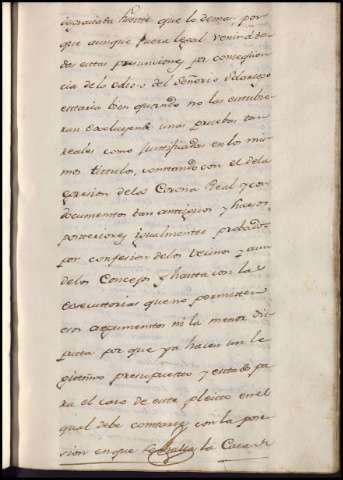 que lo demas, por
que aunque fuera legal venirà to
das estas presunciones por consequen
cia de lo odioso del Señorio
estaria bien quando no las estubie
ran excluyendo unas pruebas tan
reales como justificadas en los mis
mos titulos, contando con el de la
egresion de la Corona Real y con
documentos tan antiguos y hechos
posteriores igualmente probados
por confesion de los vecinos y aun
de los Concejos y hasta con la
executtorias que no permitten
esos argumentos ni la menor dis
putta por que ya hacen un le
gittimo presupuesto y estado pa
ra el caso de este pleito en el
qual debe contarse con la pose
sion en que se halla la Casa de